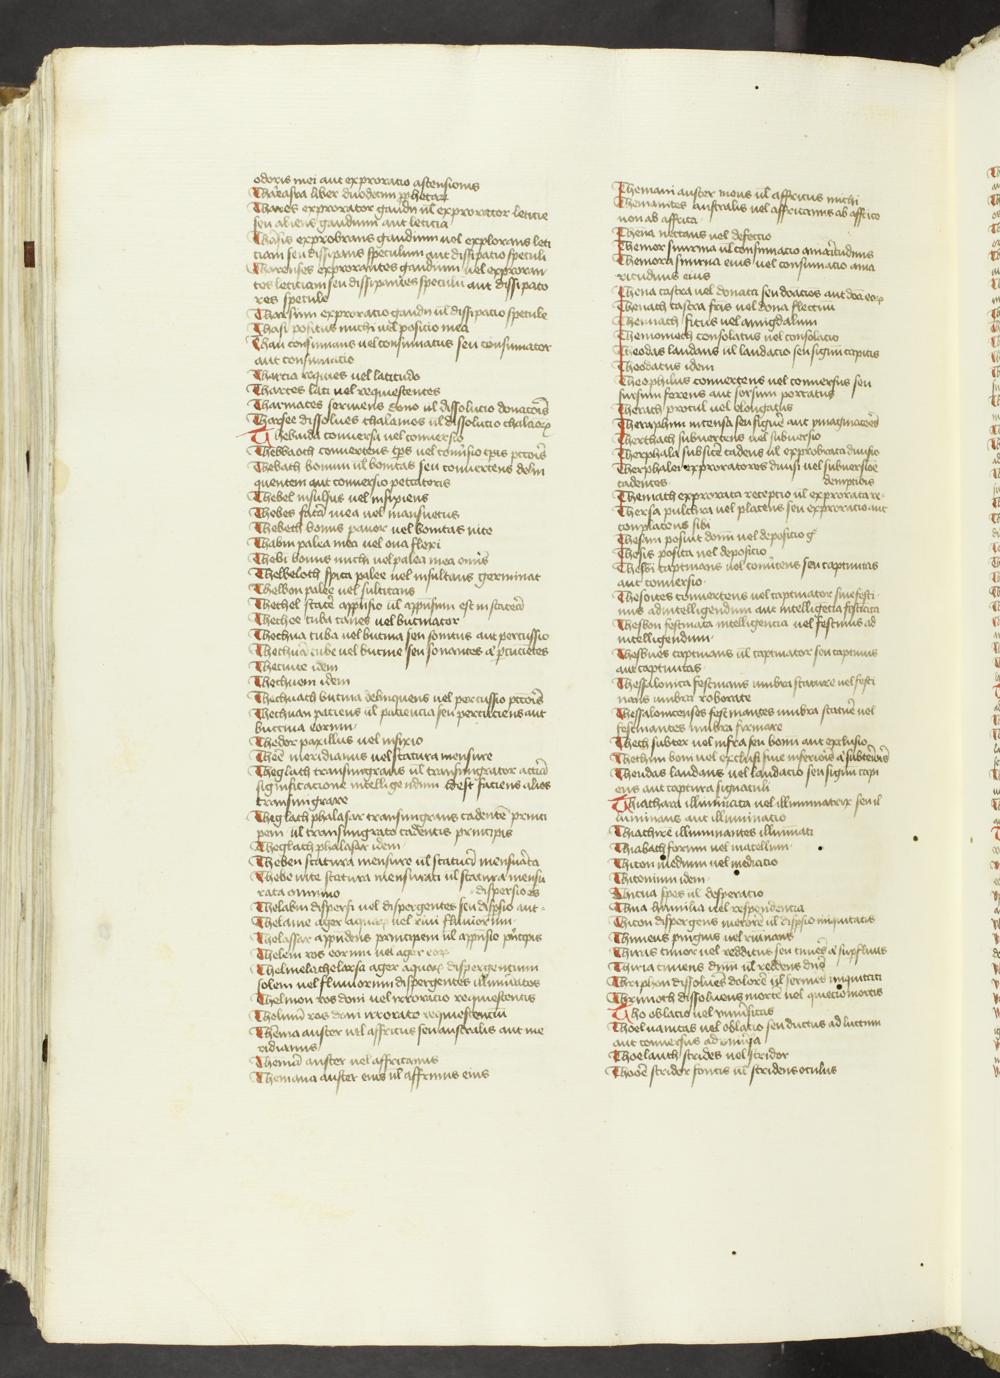 odoris mei aut exproratio astensionis
Tharasra liber duodecim prophetarum
Thares exprorator gaudii ul exprorator leticie
seu aliens gaudium aut leticia
Tharsis exprobrans gaudium uel explorans leti
ciam seu dissipans speculum aut dissipatio speculi
Tharenses exprorantes gaudium uel exproran
tes leticiam seu dissipantes speculum aut dissipato
res specule
Tharsum exproratio gaudii ul dissipatio specule
Thasi positus michi uel positio mea
Thau consumans uel consumatus seu consumator
aut consumatio
Tharcia requies uel latitudo
Tharces lati uel requiescentes
Tharmates seruiens dono ul dissolucio donacionis
Tharsee dissolues thalamos ul dissolucio
Thebaida conuersa uel conuersio
Thebbaoth conuertens
Thebath bonum ul bonitas seu conuertens delin
quentem aut conuersio peccatoris
Thebel insulsus uel insipiens
Thebes facta mea uel mansuetus
Thebeth bonus pauor uel bonitas uite
Thabin palea mea uel oua flexi
Thebi bonus michi uel palea mea
Thelbeloth spica palee uel insultans germinat
Thelbon palee uel
Thechel statera appensio ul appensum est in statera
Thechoe tuba canes uel bucinator
Thechua tuba uel bucina seu sonitus aut percussio
Thechua tube uel bucine seu sonantes
Thecuite idem
Thechuem idem
Thechuath bucina delinquens uel percussio
Thechuan paciens ul paciencia seu percuciens aut
buccina eorum
Thedor paxillus uel
Theē meridianus uel statura mensure
Theglath transmigrans ul transmigrator
significatione intelligendum id est faciens alios
transmigrare
Theglach phalasar transmigrans cadente princi
pem ul transmigrato cadentis principis
Theglach phalasar idem
Theben statura mensure ul statura mensurata
Thebe uite statura mensurati ul statura mensu
rata omnino dispersio es
Thelabin dispersi uel dispergentes seu dispersio aut
Thelame ager aquarum uel riui fluuiorum
Thelassar appendens principem ul appensio principis
Thelem ros eorum uel ager eorum
Thelmela thelarsa ager aquarum dispergentium
solem uel fluuiorum dispergentes illuminatos
Thelmon ros doni uel irroracio requiescentis
ros doni irrorato requiescentium
Thema auster uel affricus seu australis aut me
ridianus
auster uel affricanus
Themana auster eius ul affrinus eius
Themani auster meus ul affricus michi
Themanites australis uel affricanus ab affrico
non ab affrica
Thena uectans uel defectio
Themor smirna ul consumacio amaritudinis
Themora smirna eius uel consumacio ama
ritudinis eius
Thena castra uel donaca seu
Thenach castra fris uel dona flectum
Thennach ficus uel amigdalum
Thenomech consolatus uel consolacio
Theodas laudans ul laudacio seu signum capitis
Theodatus idem
Theophilus conuertens uel conuersus seu
sursum ferens aut sorsum portatus
Therach procul uel elongatus
Theraphim intensa seu figure aut
Therthach subuertens uel subuersio
Therphala subsice cadens ul exprobrata diuisio
Therphalei exproratores diuisi uel subuersioē
cadentes demptiōis
Themach exprorata receptio ul exprorata re
Thersa pulchra uel placens seu exproratio aut
complacens sibi
Thesam posuit domum uel depositio
Thesis posita uel depositio
Thesbi captiuans uel conuertens seu captiuitas
aut conuersio
Thesoites conuertens uel captiuator siue festi
nus ad intelligendum aut intelligencia
Thesbon festinata intelligencia uel festinus ad
intelligendum
Thesbites captiuans ul captiuator seu captiuus
aut captiuitas
Thessalonica festinans umbra stature uel festi
nans umbra roborate
Thessalonicenses festinantes umbra stature uel
festinantes umbra firmare
Thech subter uel infra seu boni aut exclusio
Thochim boni uel exclusi siue inferiores
Theudas laudans uel laudacio seu signum capi
ens aut captura signaculi
Thiathara illuminata uel illuminatrix seu il
luminans aut illuminacio
Thiathire illuminantes illuminati
Thiabath forum uel macellum
Thicon medium uel mediatio
Thiconium idem
Thicua spes ul desperatio
Thina humilia uel respondencia
Thicon dispergens merore ul dispersio iniquitatis
Thimeus pinguis uel ruinans
Thiras timor uel redditus seu timens
Thiria timens dnm ul reddens
Thriphon dissoluens dolore ul sermo iniquitati
Thrimoth dissoluens morte uel quietio mortis
Tho oblacio uel
Thoel uanitas uel oblacio seu ductus ad luctum
aut conuersus ad
Thoelauth strides uel stridor
Thooē stridor fontis ul stridens oculus